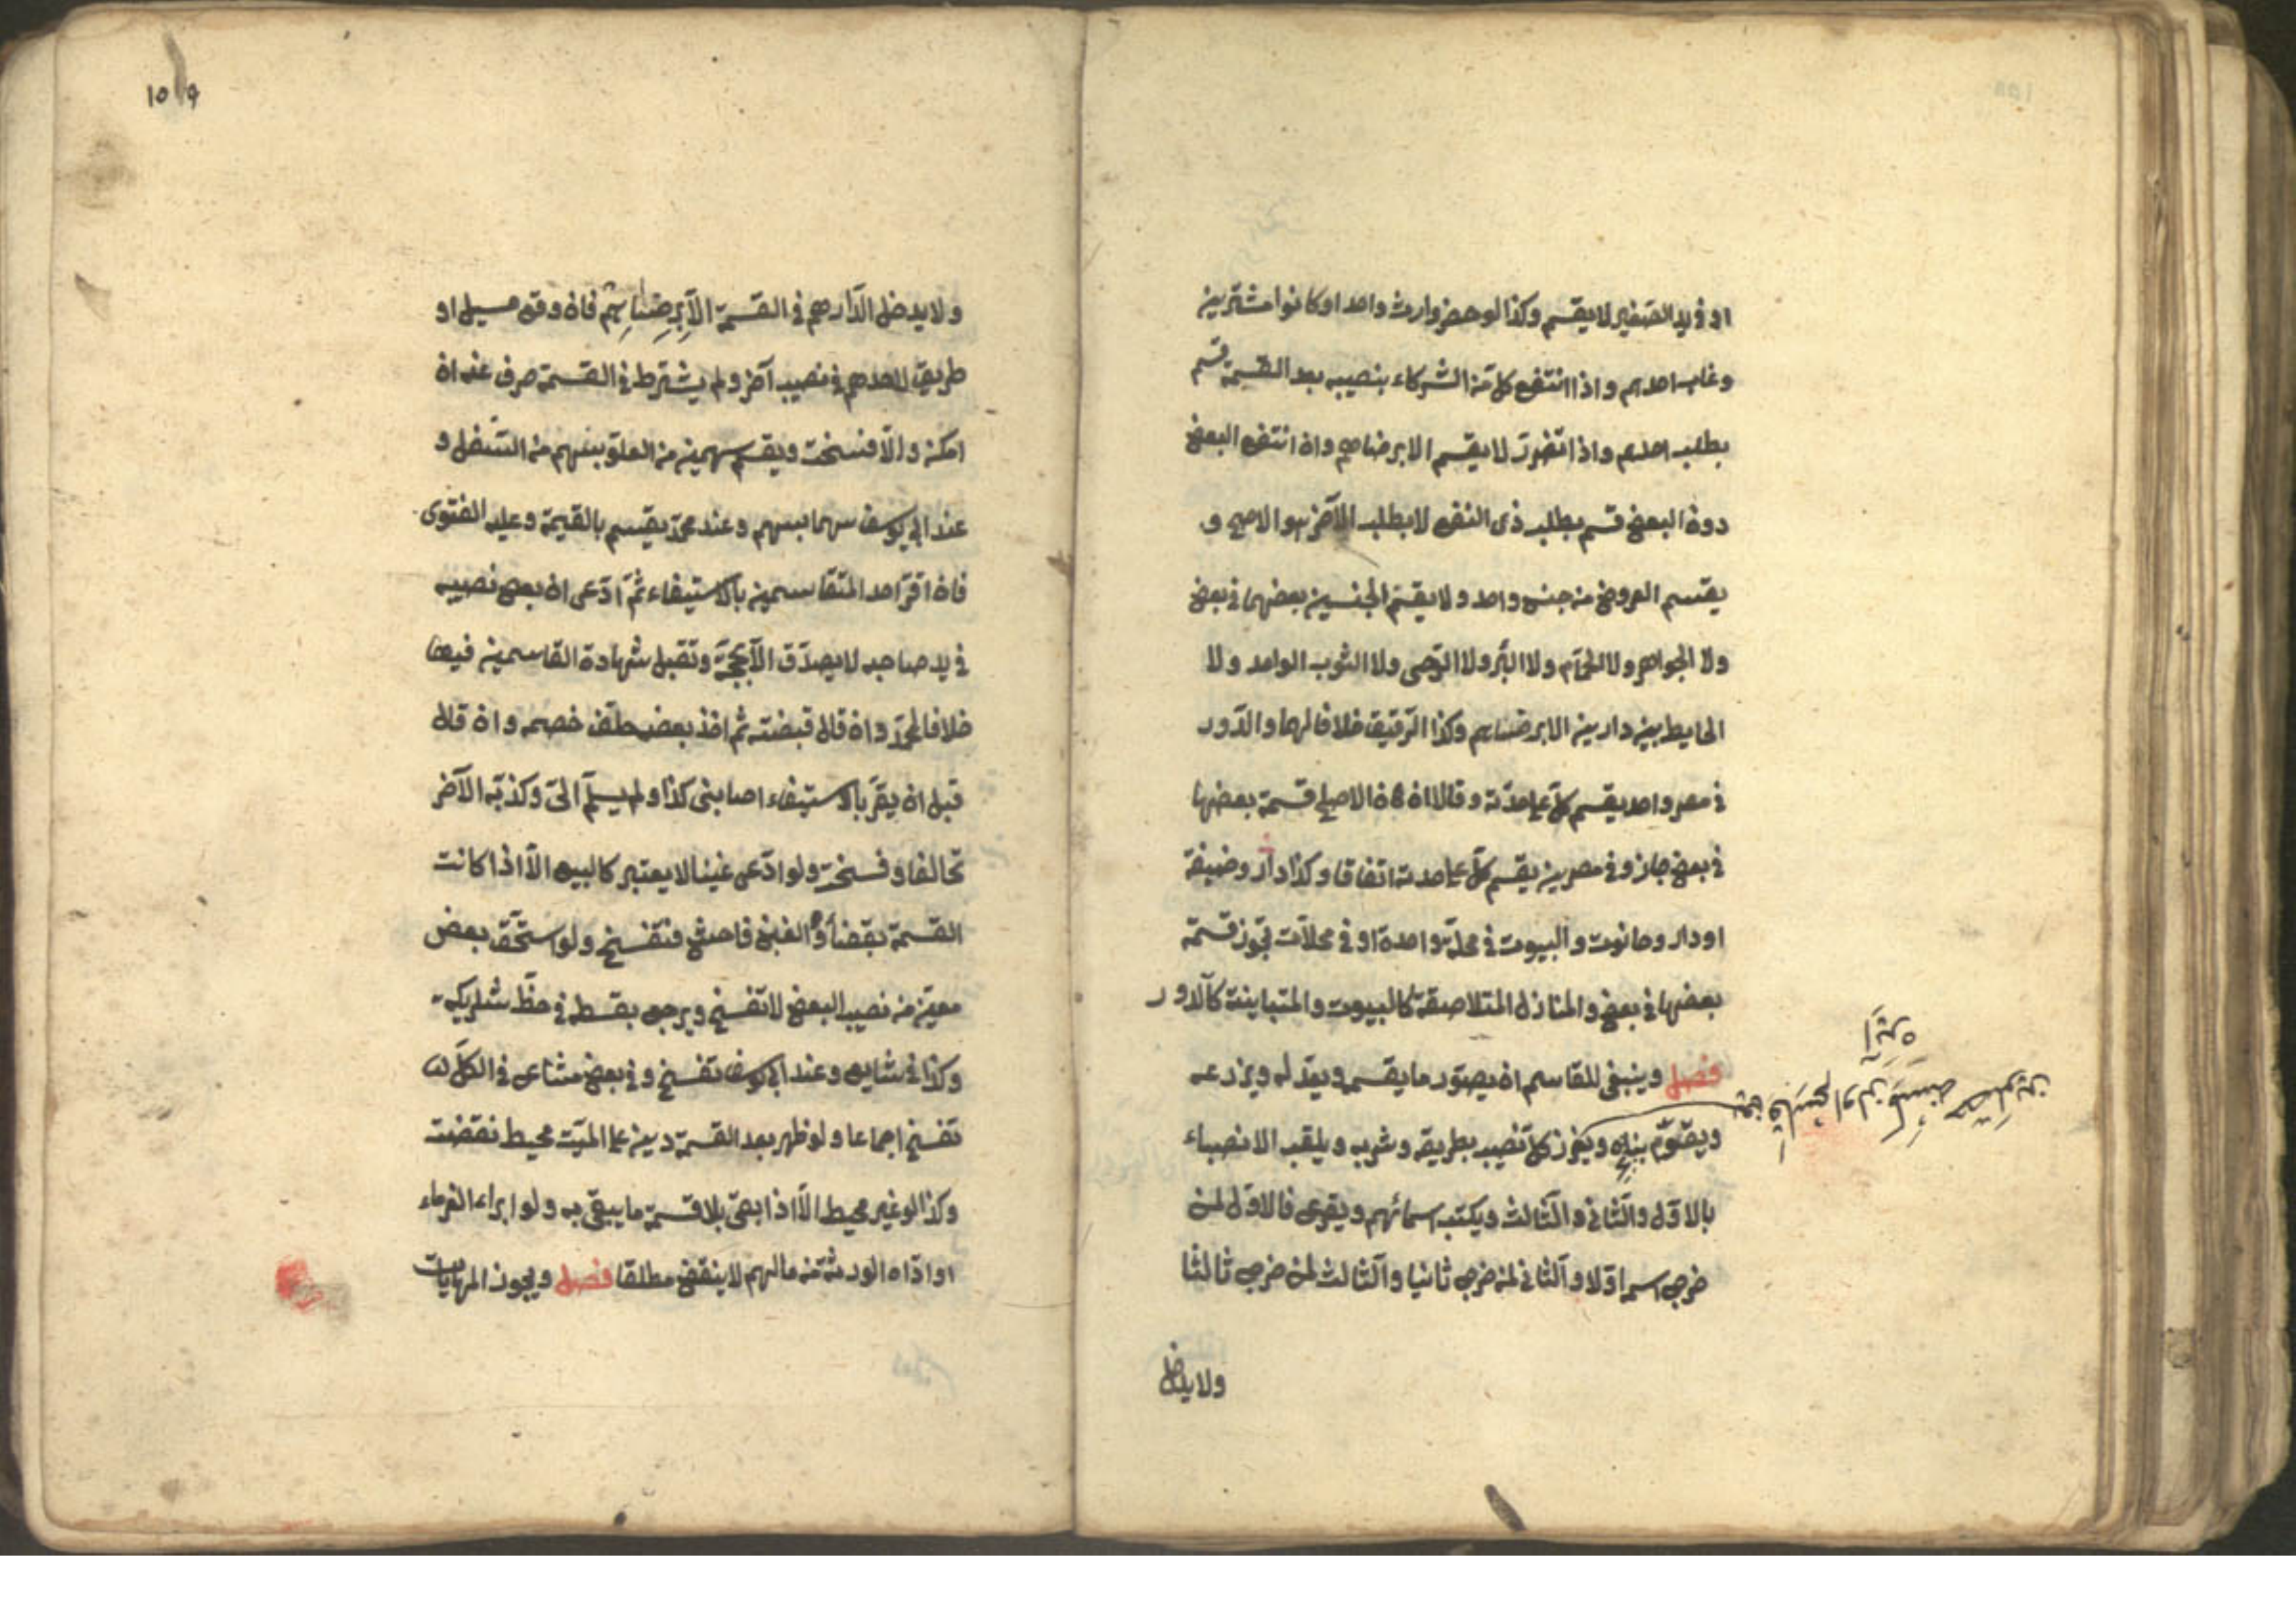 او فى يد الصغير لا يقسم وكذا لو حضر وارث واحد او كانوا مشترين
وغاب احدهم واذا انتفع كل من الشركاء بنصيبه بعد القسمة قسم
بطلب احدهم واذا تضرر لا يقسم الا برضاهم وان انتفع البعض
دون البعض قسم بطلب ذى النفع لا بطلب الآخر هو الاصح و
يقسم العروض من جنس واحد ولا يقسم الجنسين بعضهما فى بعض
ولا الجواهر ولا الحمّام ولا البئر ولا الرّحى ولا الثوب الواحد ولا
الحايط بين دارين الا برضاهم وكذا الرّقيق خلافا لهما والدّور
فى مصر واحد يقسم كلّ على حدّته وقالا ان كان الاصلح قسمة بعضها
فى بعض جاز وفى مصرين يقسم كلّ على حدته اتفاقا وكذا دار وضيعة
او دار وحانوت والبيوت فى محلّة واحدة او فى محلّات تجوز قسمة
بعضها فى بعض والمنازل المتلاصقة كالبيوت والمتباينة كالدور
فصل وينبغى للقاسم ان يصوّر ما يقسم ويعدّله ويذرعه
ويقوّم بناءه ويفرز كلّ نصيب بطريقه وشربه ويلقب الانصباء
بالاوّل والثّانى والثّالث ويكتب اسمائهم ويقرع فالاوّل لمن
خرج اسمه اوّلا والثّانى لمن خرج ثانيا والثّالث لمن خرج ثالثا
ولا يدخل
١٥٩
ولا يدخل الدّراهم فى القسمة الّا بِرِضَاهِم فان وقع مسيل او
طريق لاحدهم فى نصيب آخر ولم يشترط فى القسمة صرف عنه ان
امكن والّا فسخت ويقسم سهمين من العلوّ بسهم من السّفل و
عند ابى يوسف سهما بسهم وعند محمّد يقسم بالقيمة وعليه الفتوى
فان اقرّ احد المتقاسمين بالاستيفاء ثمّ ادّعى ان بعض نصيبه
فى يد صاحبه لا يصدّق الّا بحجّة وتقبل شهادة القاسمين فيها
خلافا لمحمّد وان قال قبضته ثم اخذ بعضه حلّف خصمه وان قال
قبل ان يقرّ بالاستيفاء اصابنى كذا ولم يسلّم الىّ وكذبّه الآخر
تحالفا وفسخت ولو ادّعى غبنا لا يعتبر كالبيع الّا اذا كانت
القسمة بقضاء والغبن فاحش فتفسخ ولو استحّق بعض
معيّن من نصيب البعض لا تفسخ ويرجع بقسطه فى حظّ شريكه
وكذا فى شايع وعند ابى يوسف تفسخ وفى بعض مشاع فى الكلّ
تفسخ اجماعا ولو ظهر بعد القسمة دين على الميّت محيط نقضت
وكذا لو غير محيط الّا اذا بقى بلا قسمة ما يبقى به ولو ابراء الغرماء
او ادّاه الورثة من مالهم لا ينقض مطلقا فصل ويجوز المهايات